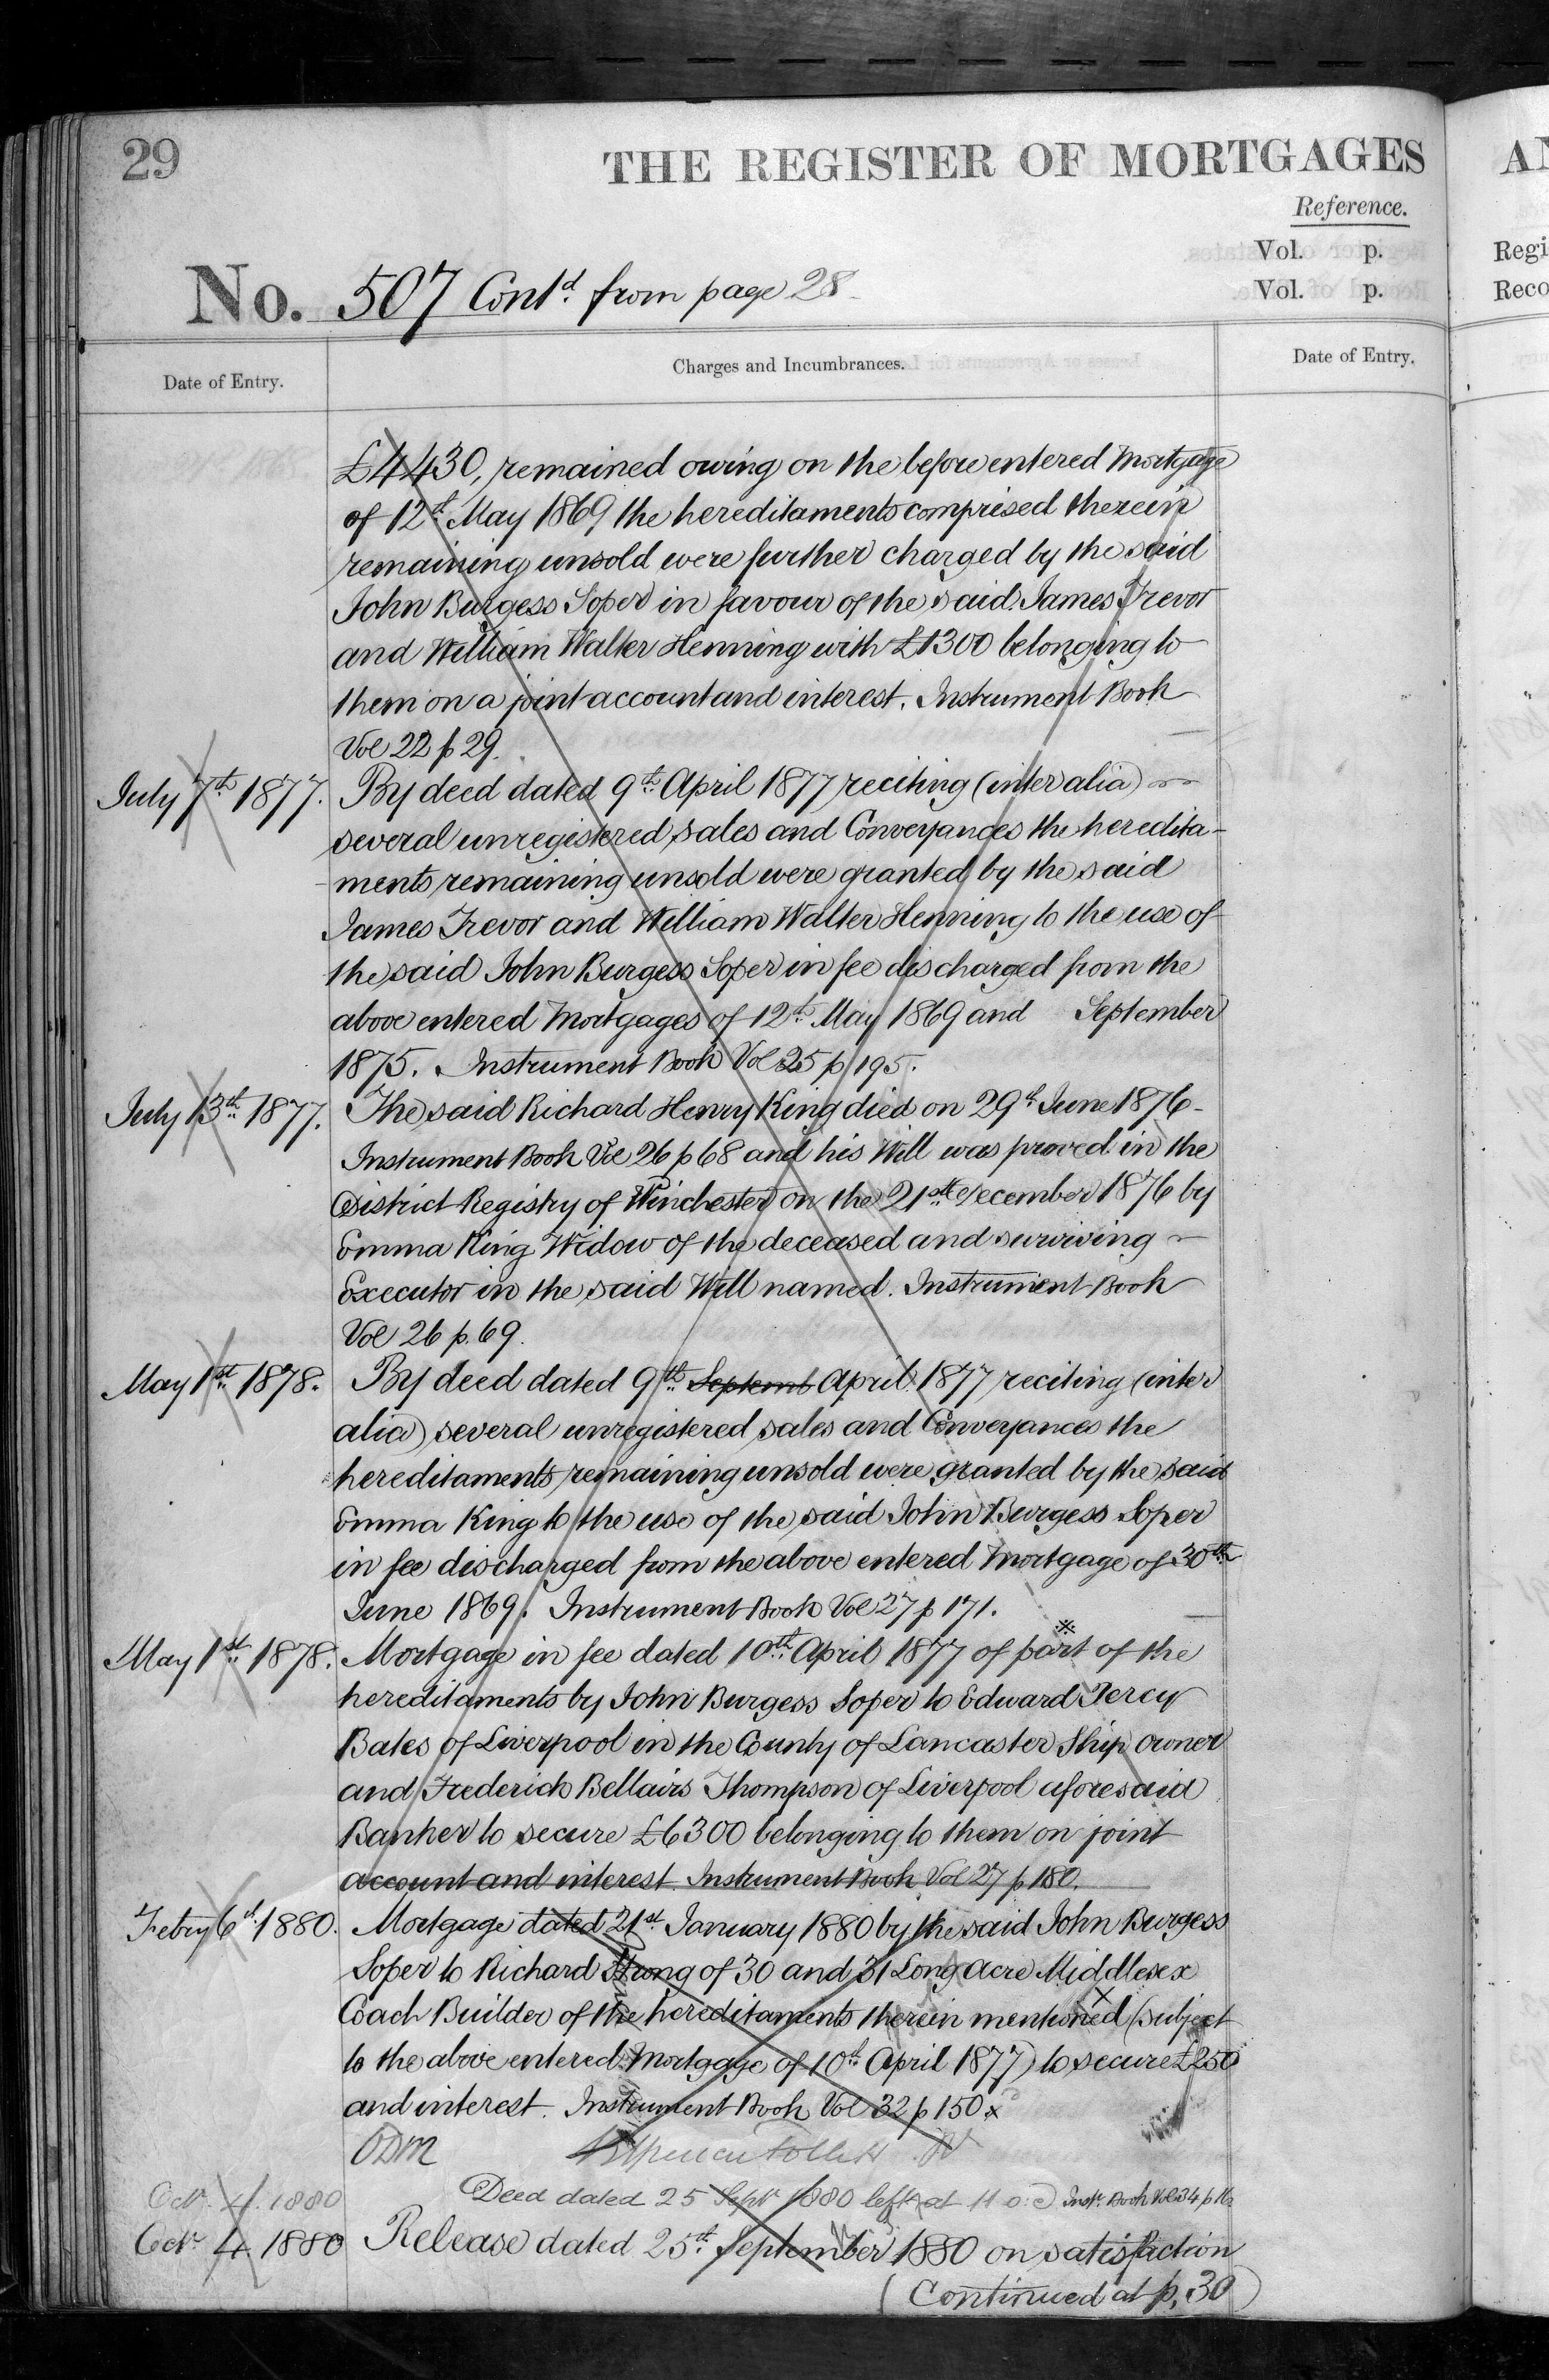 29
THE REGISTER OF MORTGAGES
Reference.
Vol. p.
Vol. p.
No. 507 Contd. from page 28
Date of Entry.
Charges and Incumbrances.
Date of Entry.
£4430, remained owing on the before entered Mortgage
of 12th May 1869 the hereditaments comprised therein
remaining unsold were further charged by the said
John Burgess Soper in favour of the said James Trevor
and William Walter Henning with £1300 belonging to
them on a joint account and interest. Instrument Book
Vol 22 p 29.
July 7th 1877. By deed dated 9th April 1877 reciting (inter alia)
several unregistered sales and Conveyances the heredita-
ments remaining unsold were granted by the said
James Trevor and William Walter Henning to the use of
the said John Burgess Soper in fee discharged from the
above entered Mortgages of 12th May 1869 and September
1875. Instrument Book Vol 25 p 195.
July 13th 1877. The said Richard Henry King died on 29th June 1876-
Instrument Book Vol 26 p 68 and his Will was proved in the
District Registry of Winchester on the 21st December 1876 by
Emma King Widow of the deceased and surviving
Executor in the said Will named. Instrument Book
Vol 26 p. 69.
May 1st 1878. By deed dated 9th Septemb April 1877 reciting (inter
alia) several unregistered sales and Conveyances the
hereditaments remaining unsold were granted by the said
Emma King to the use of the said John Burgess Soper
in fee discharged from the above entered Mortgage of 30th
June 1869. Instrument Book Vol 27 p 171.
May 1st 1878. Mortgage in fee dated 10th April 1877 of part of the
hereditaments by John Burgess Soper to Edward Percy
Bates of Liverpool in the County of Lancaster Ship owner
and Frederick Bellairs Thompson of Liverpool aforesaid
Banker to secure £6300 belonging to them on joint
account and interest. Instrument Book Vol 27 p 180.
Febry 6th 1880. Mortgage dated 21st January 1880 by the said John Burgess
Soper to Richard Strong of 30 and 31 Long Acre Middlesex
Coach Builder of the hereditaments therein mentioned (subject
to the above entered Mortgage of 10th April 1877) to secure £250
and interest. Instrument Book Vol 32 p 150 x
Octr. 4. 1880 Deed dated 25 Septr 1880 left at 11 o.c Instr. Book Vol 34 p
Octr 4 1880 Release dated 25th September 1880 on satisfaction
(Continued at p. 30)
AN
Regi
Reco